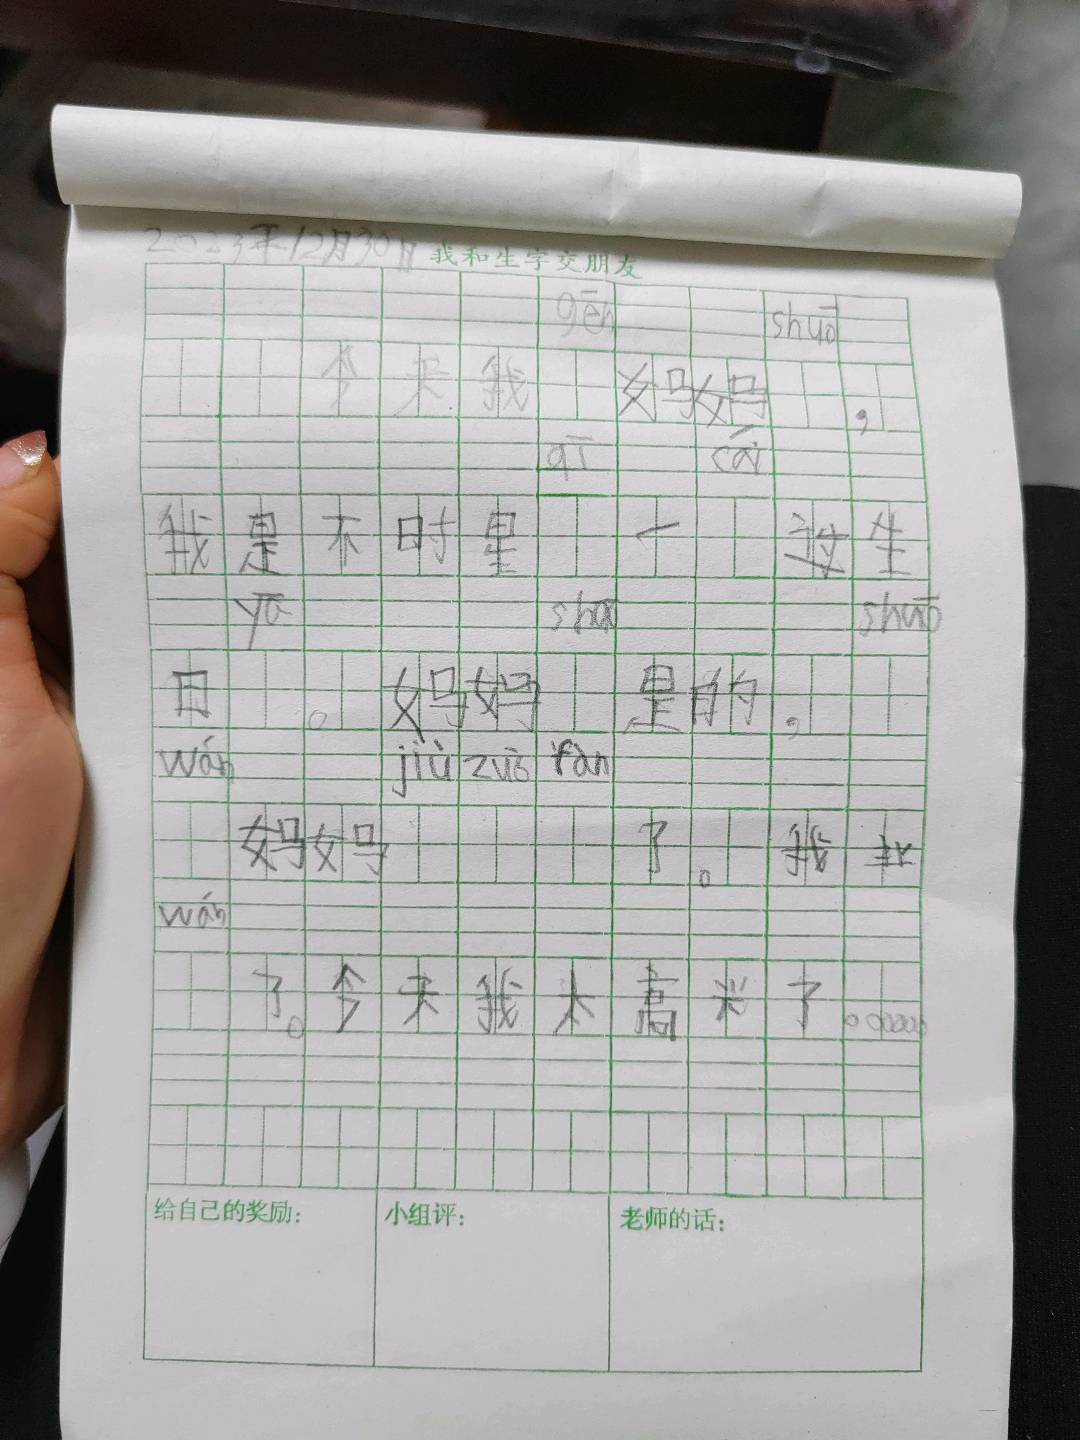 2023年12月30日我和生字交朋友
gēn shuō
今天我 妈妈 ，
qī cái
我是不时星 一 过生
yā shuō
日 。 妈妈 是的， 
wán jiù zuò fàn
妈妈 了。我 就
wán
了。今天我太高兴了。ooooo
给自己的奖励： 小组评： 老师的话：